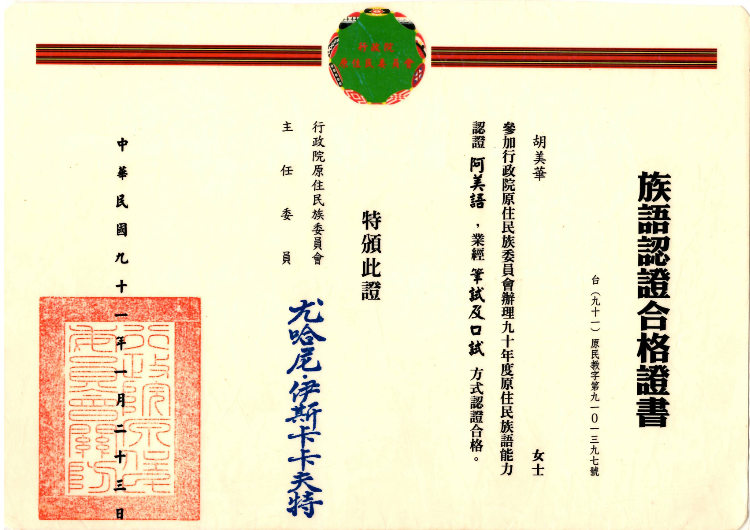 行政院
原住民委員會
族語認證合格證書
台（九十一）原民教字第九一0一三九七號
胡美華 女士
參加行政院原住民族委員會辦理九十年度原住民族語能力
認證 阿美語 ，業經 筆試及口試 方式認證合格。
特頒此證
行政院原住民族委員會
主任委員 尤哈尼·伊斯卡卡夫特
中華民國九十一年一月二十三日
行政院原住民
委員會關防